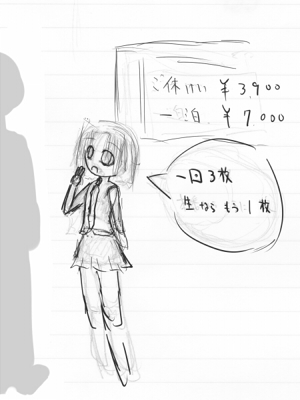 ご休けい ¥3,900
一泊 ¥7,000
一回3枚
生ならもう1枚